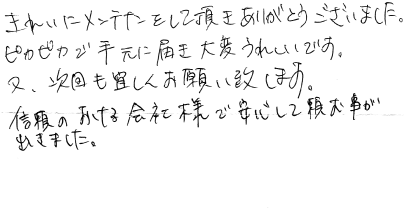 きれいにメンテナンスをして頂きありがとうございました。
ピカピカで手元に届き大変うれしいです。
又、次回も宜しくお願い致します。
信頼のおける会社様で安心して頼む事が
出きました。